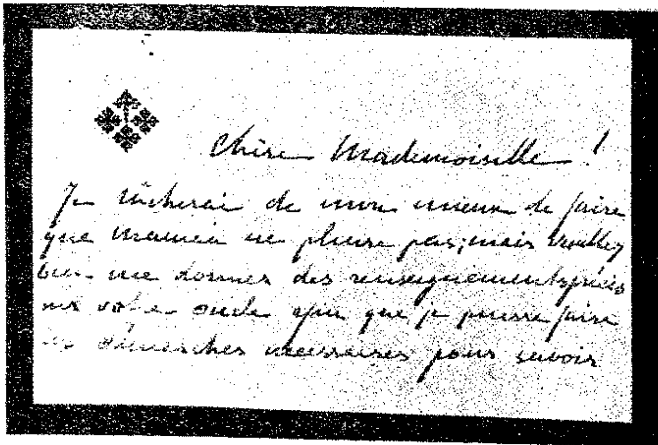 Chère Mademoiselle !
Je tâcherai de mon mieux de faire
que maman ne pleure pas; mais veuillez
bien me donner des renseignements précis
sur votre oncle afin que je puisse faire
les démarches nécessaires pour savoir